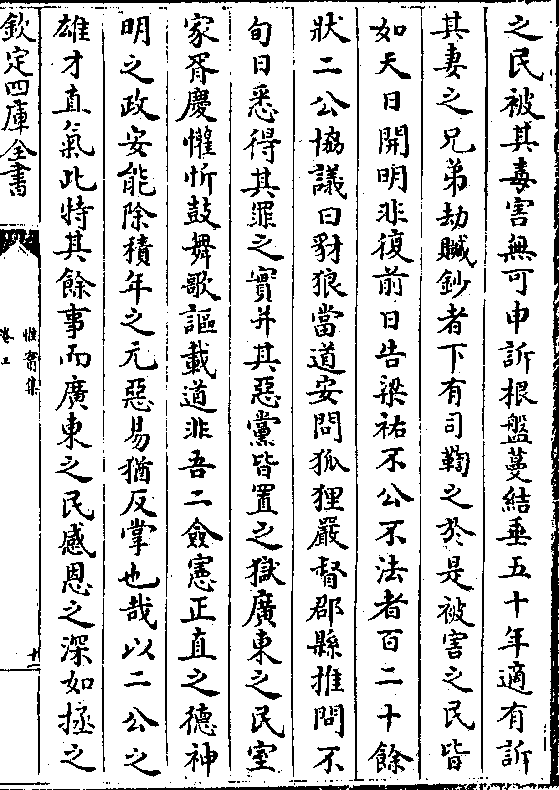 之民被其毒害無可申訴根盤蔓結垂五十年適有訴
其妻之兄弟劫贓鈔者下有司鞫之於是被害之民皆
如天日開明非復前日告梁祐不公不法者百二十餘
狀二公協議曰豺狼當道安問狐狸嚴督郡縣推問不
旬日悉得其罪之實并其惡黨皆置之獄廣東之民室
家胥慶懽忻鼓舞歌謳載道非吾二僉憲正直之德神
明之政安能除積年之元惡易猶反掌也哉以二公之
雄才直氣此特其餘事而廣東之民感恩之深如拯之
欽定四庫全書
惟實集